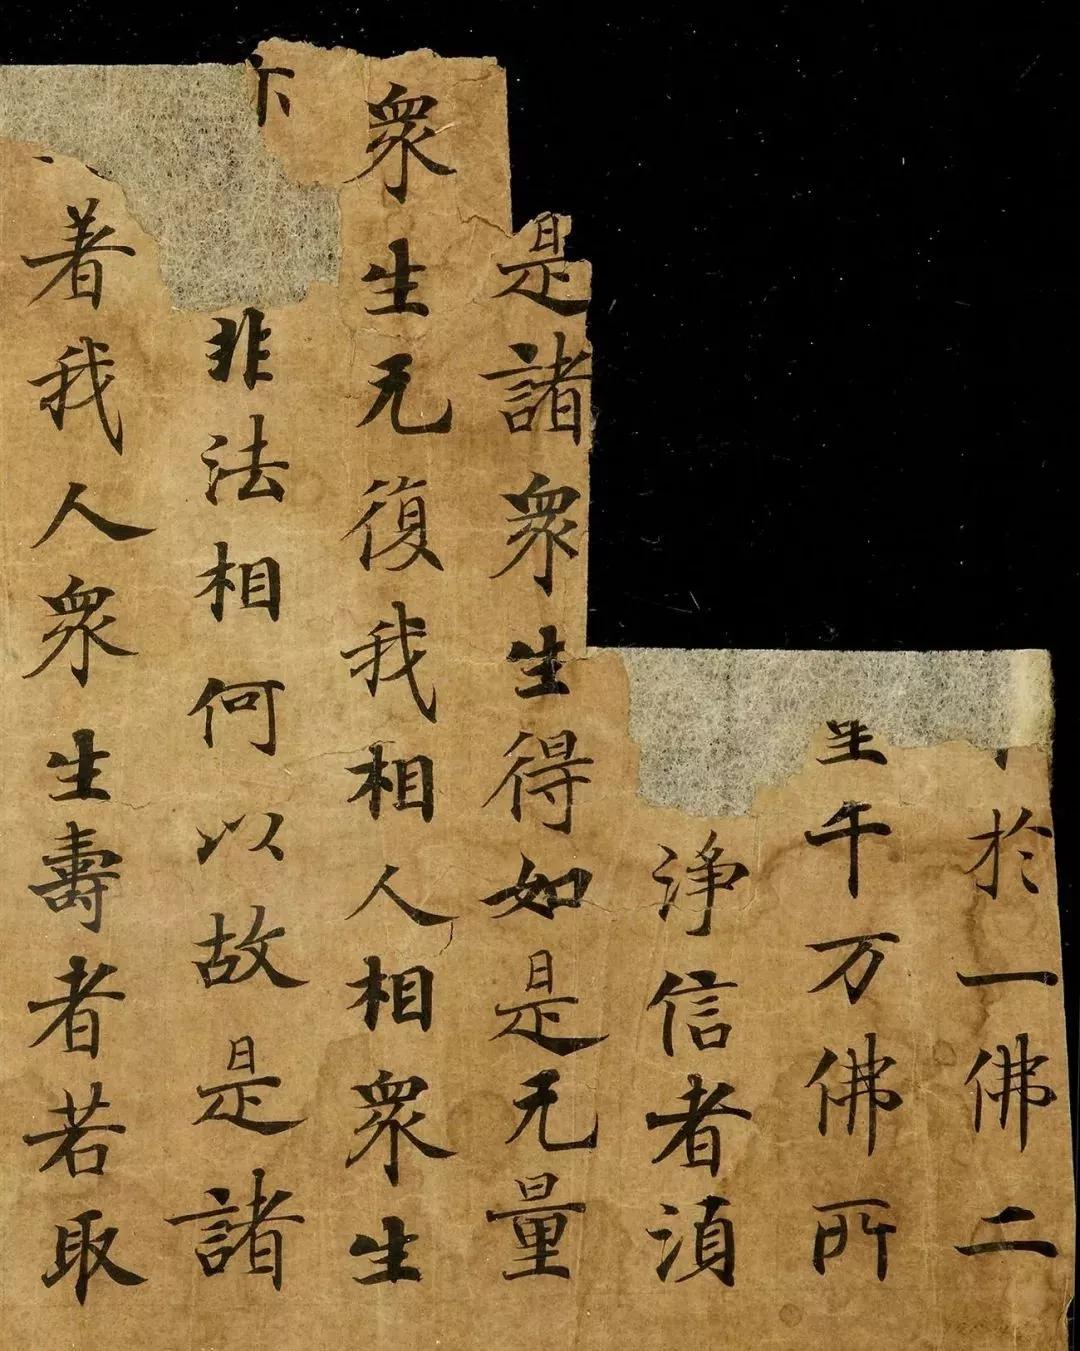 於一佛二
千万佛所
净信者湏
是諸衆生得如是无量
衆生无復我相人相衆生
非法相何以故是諸
着我人衆生壽者若取